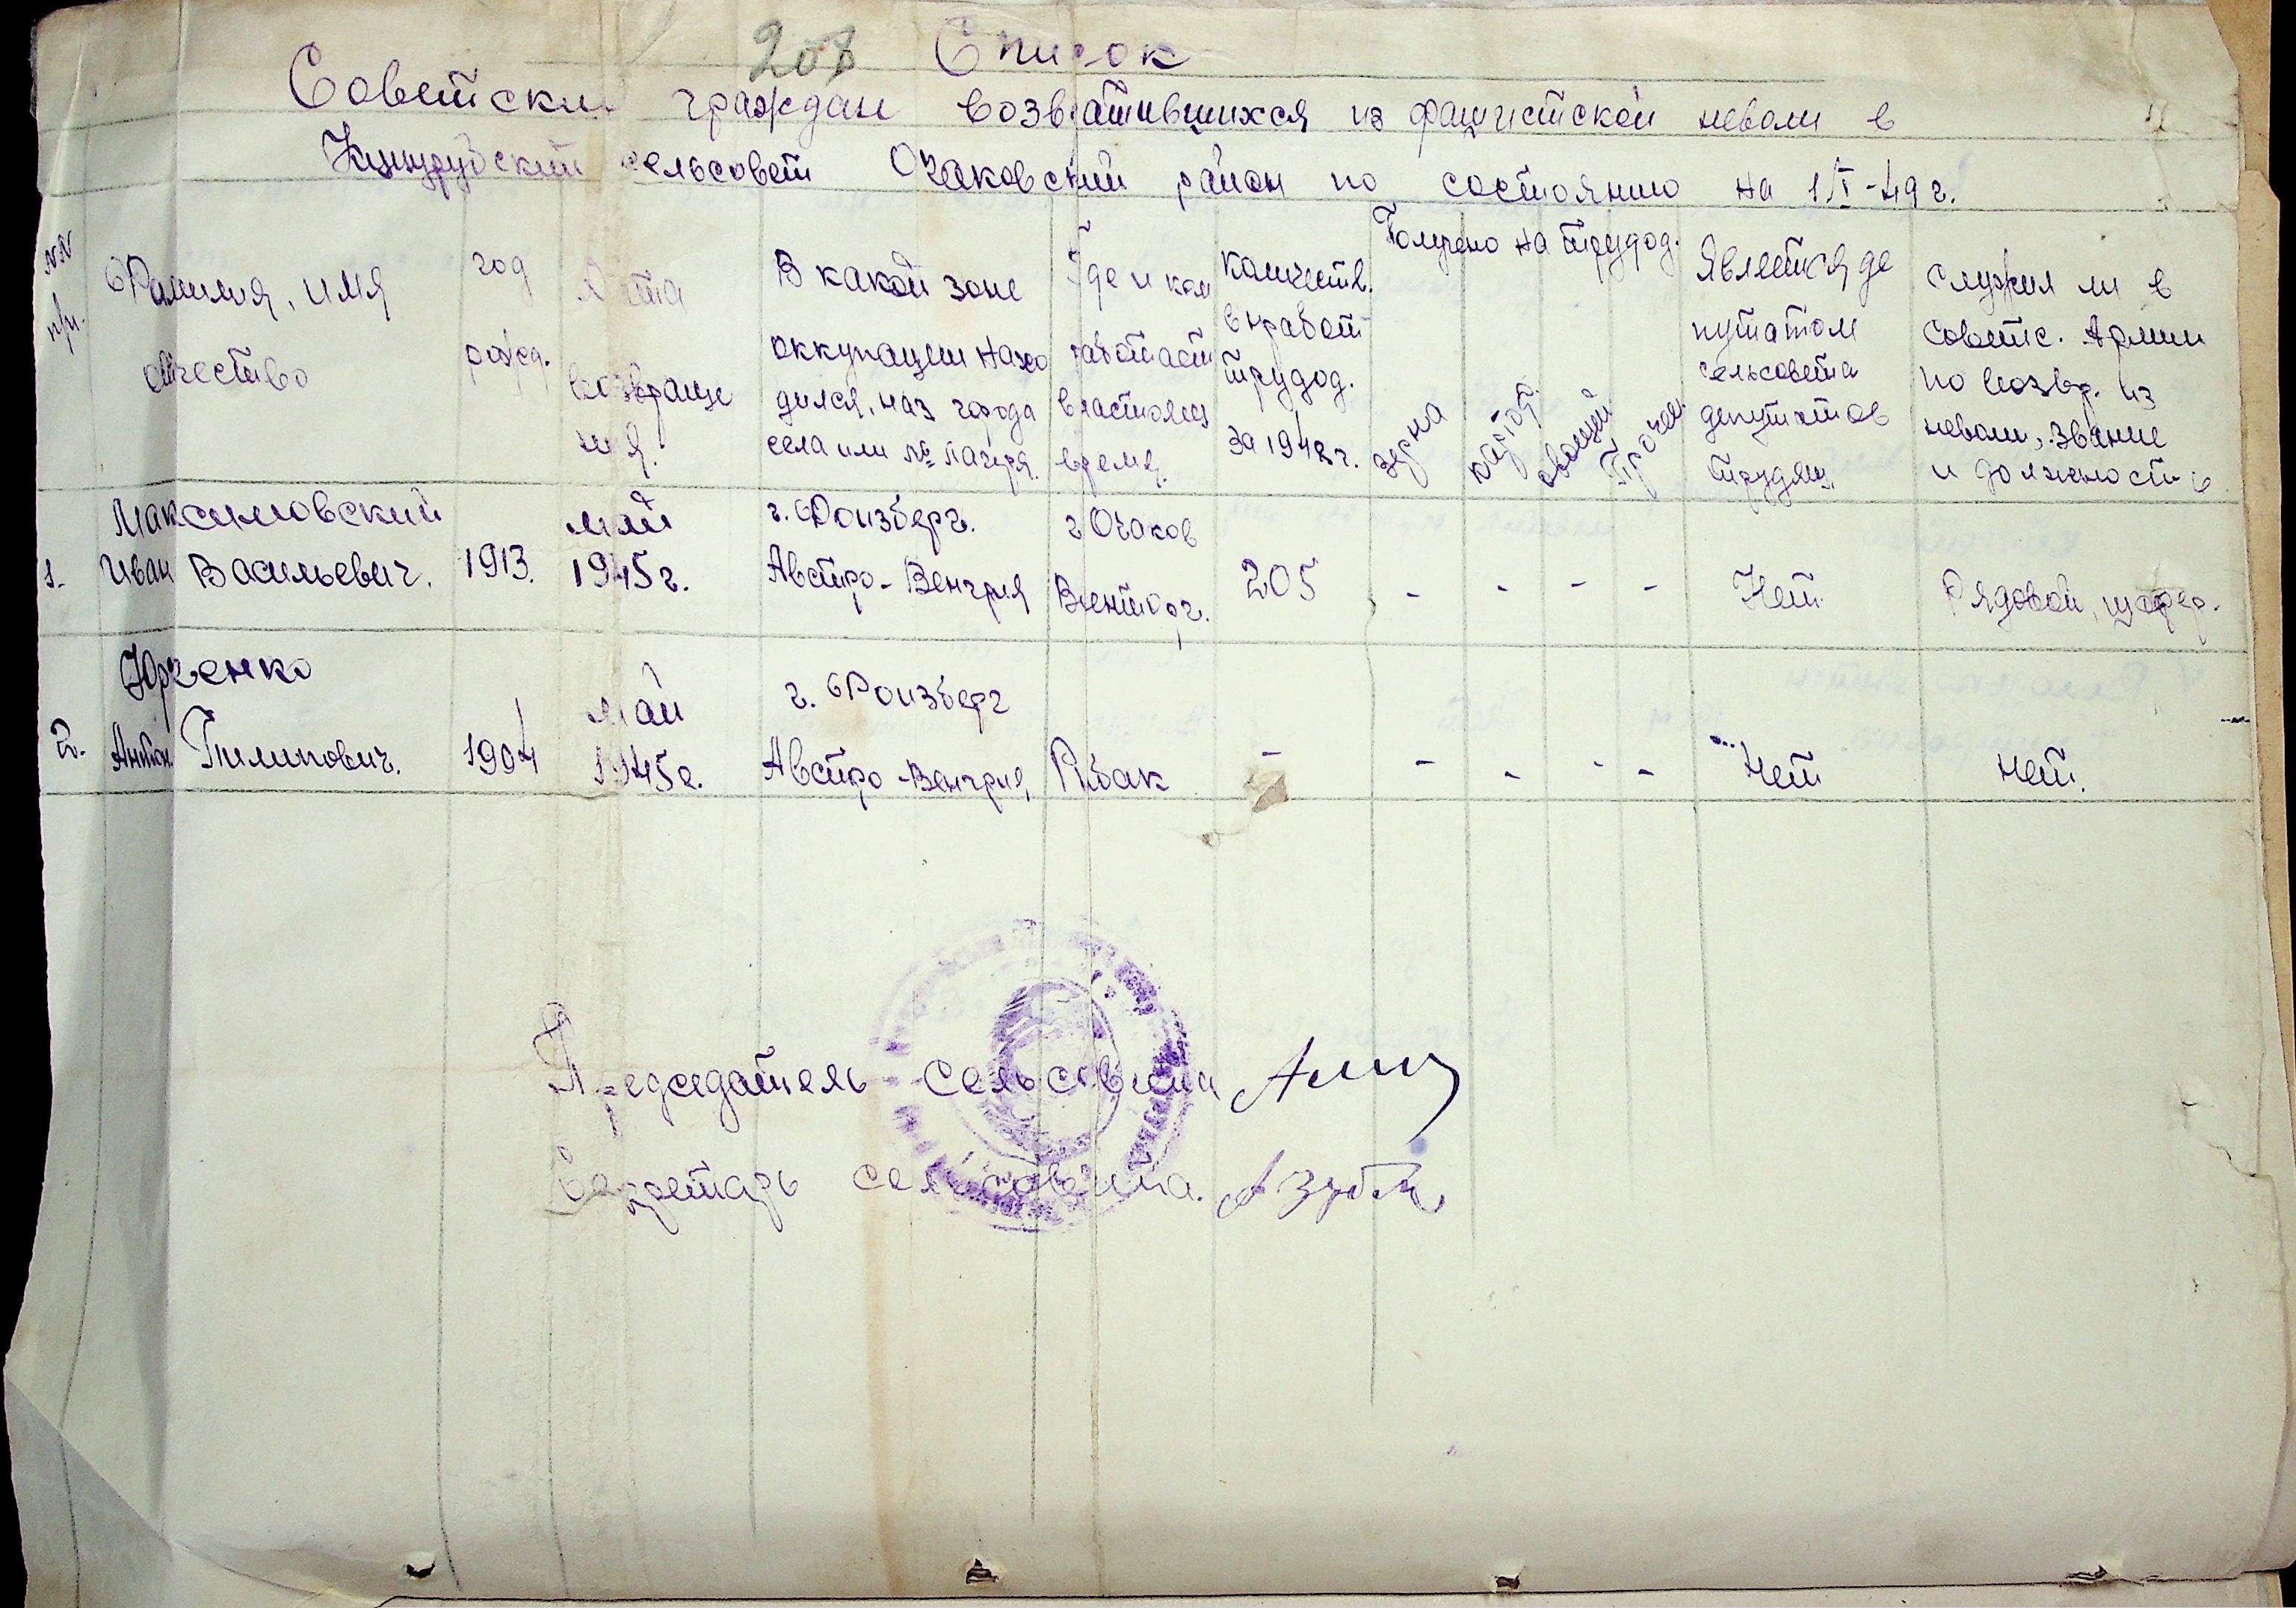 208 Список
Советских граждан возвратившихся из фашистской неволи в
сельсовет Очаковский район по состоянию на 1/I-49 г.
№№ п/п.
Фамилия, имя
отчество
год
рожд.
Дата
возвраще
ния.
В какой зоне
оккупации нахо
дился, наз города
села или № лагеря.
Где и кем
работает
в настоящ
время.
Количеств.
выработ
трудод.
за 1948 г.
Получено на трудод.
зерна
картоф.
овощей
Прочее.
Является де
путатом
сельсовета
депутатов
трудящ.
служил ли в
Советс. Армии
по возвр. из
неволи, звание
и должность
1. Максимовский
Иван Васильевич. 1913. май
1945 г. г. Фоизберг.
Австро-Венгрия г Очаков
205 - - - - Нет. Рядовой, шофер.
2. Юрченко
Антон Пилипович. 1904 май
1945 г. г. Фоизберг
Австро-Венгрия Рибак - - - - - Нет нет.
Председатель сельсовета
Секретарь сельсовета.